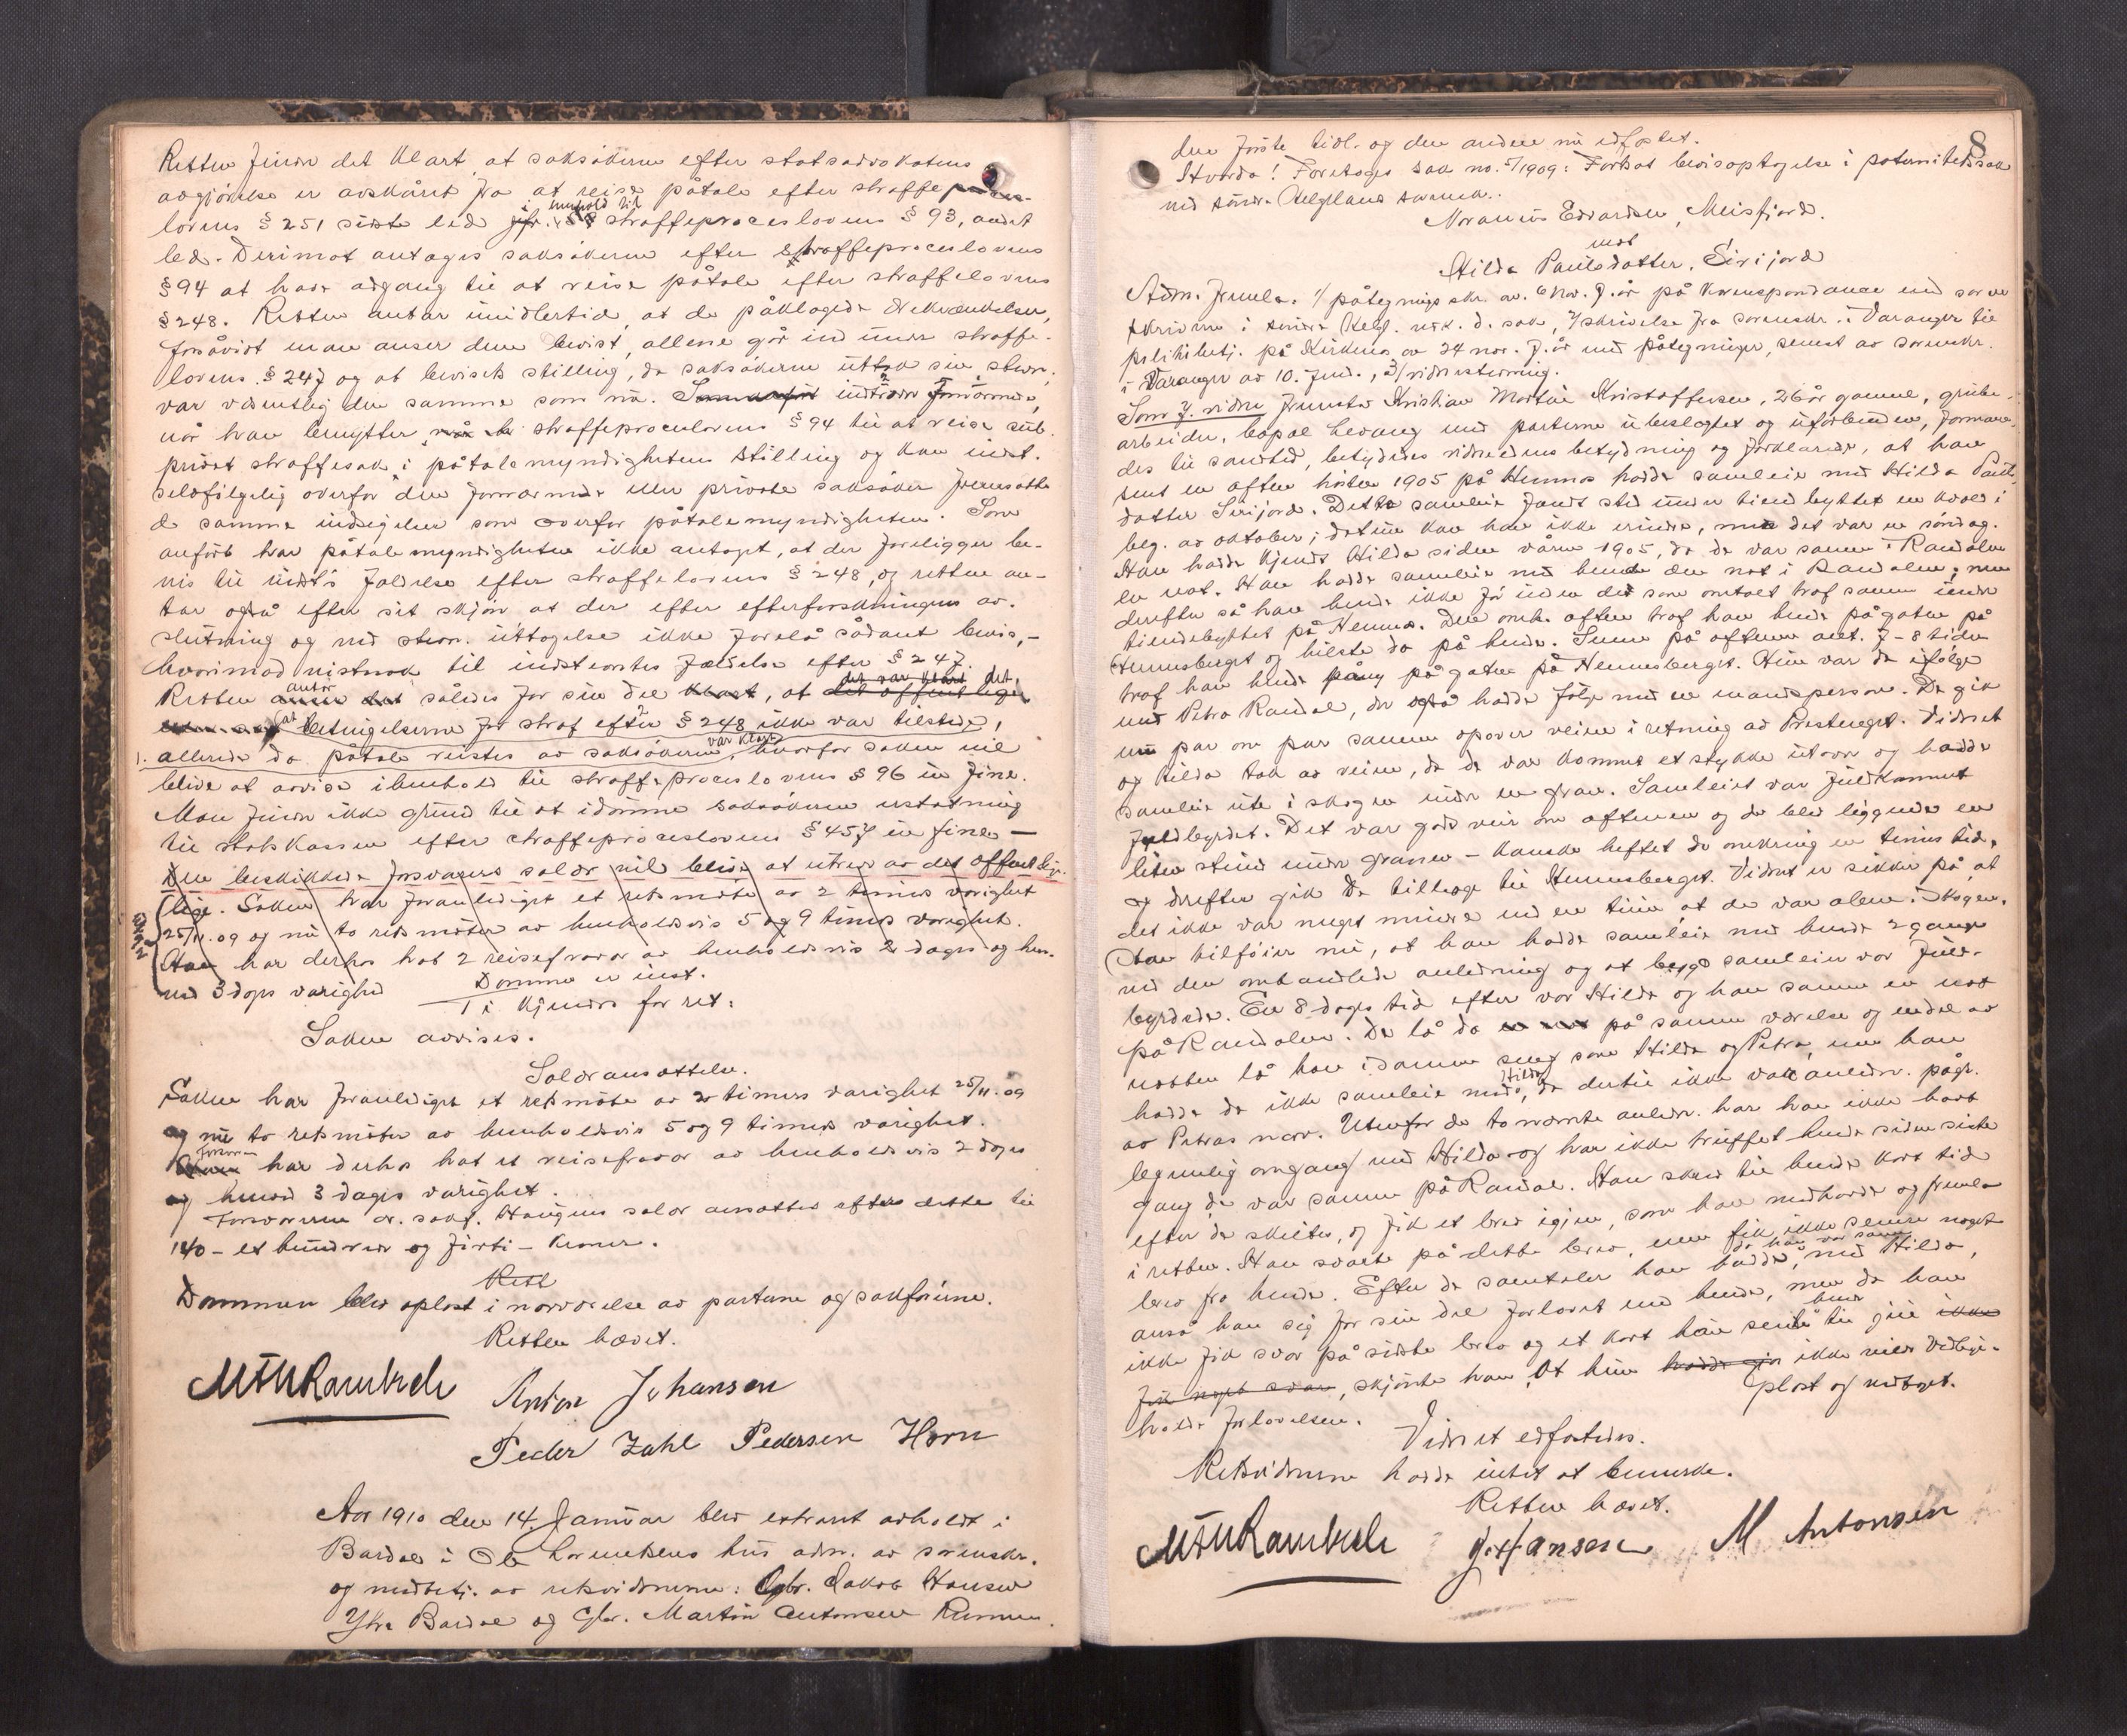 Retten finder det klart at saksøkerne efter statsadvokatens
avgjørelse er avskåret fra at reise påtale efter straffe
lovens § 251 sidste led i henhold til straffeproceslovens § 93, andet
led. Derimot antages saksøkerne efter straffeproceslovens
§ 94 at have adgang til at reise påtale efter straffelovens
§ 248. Retten antar imidlertid, at de påklagede ærekrænkelser,
forsåvidt man anser dem bevist, allene går ind under straffe-
lovens § 247 og at bevisets stilling, da saksøkerne uttok sin stevn.
var væsentlig den samme som nu. indtræder fornærmede,
når han benytter straffeproceslovens § 94 til at reise sub.
privat straffesak i påtalemyndighetens stilling og kan indst.
selvfølgelig overfor den fornærmede eller private saksøker fremsætte
de samme indsigelser som overfor påtalemyndigheten. Som
anført har påtalemyndigheten ikke antaget, at der foreligger be-
vis til indst's fældelse efter straffelovens § 248, og retten an-
tar også efter sit skjøn at der efter efterforskningens av-
slutning og ved stevn. uttagelse ikke forelå sådant bevis,-
hvorimod vistnok til indstevntes fældelse efter § 247.
Retten antar således for sin del, at det var klart det
at betingelserne for straf efter § 248 ikke var tilstede,
1. allerede da påtale reistes av saksøkerne, hvorfor saken vil
blive at avvise i henhold til straffeproceslovens § 96 in fine.
Man finder ikke grund til at idømme saksøkerne erstatning
til statskassen efter straffeproceslovens § 457 in fine —
Den beskikkede forsvarers salær vil blive at utrede av det offentlige.
lige. Saken har foranlediget et retsmøte av 2 timers varighet
25/11.09 og nu to retsmøter av henholdsvis 5 og 9 timers varighet.
Han har derhos hat 2 reisefravær av henholdsvis 2 dages og hen-
ved 3 dages varighed
Domme er inst.
Ti kjendes for ret:
Saken avvises.
Salæransættelse.
Saken har foranlediget et retsmøte av 2 timers varighet 25/11.09
og nu to retsmøter av henholdsvis 5 og 9 timers varighet.
Forsvareren har derhos hat et reisefravær av henholdsvis 2 dages
og henved 3 dages varighet.
Forsvareren or. sakf. Haugens salær ansættes efter dette til
140 - et hundrede og firti - kroner.
Rett
Dommen blev oplæst i nærværelse av parterne og sakførerne.
Retten hævet.
Anton Johansen
Peder Zahl Pedersen Horn
Aar 1910 den 14. Januar blev extraret avholdt i
Bardal i Ole Lorentsens hus adm. av sorenskr.
og medbetj. av retsvidnerne: Gbr. Jakob Hansen
Ytre Bardal og Gbr. Martin Antonsen
8
den første tidl. og den anden nu edfæstet.
Hvorda! Foretages sak no. 5/1909: Fortsat bevisoptagelse i paternitetssak
ved søndre Helgeland sorensk..
Edvardsen, Meisfjord.
mot
Hilda Paulsdatter, Sirijord
Adm. fremla. 1/ påtegnings skr. av. 6 nov. f. år på korrespondance med soren
skriveren i søndre Helg. vedk. d. sak, 2/ skrivelse fra sorenskr. i Varanger til
politibetj. på Kirkenes av 24 nov. f. år med påtegninger, senest av sorenskr.
i Varanger av 10. 3/ vidnestevning.
Som 7. vidne fremstod Kristian Martin Kristoffersen, 26 år gammel, grube-
arbeider, bopæl Levang med parterne ubeslægtet og uforbunden, formane-
des til sandhed, betydedes vidneedens betydning og forklarede, at han
sent en aften høsten 1905 på Hemnes hadde samleie med Hilda Pauls
datter Sirijord. Dette samleie fandt sted under tiendebyttet en kveld i
beg. av oktober; datum kan han ikke erindre, men det var en søndag.
Han hadde kjendt Hilda siden våren 1905, da de var sammen i Ranalen
en nat. Han hadde samleie med hende den nat i Ranalen; men
derefter så han hende ikke før under det som omtalt traf sammen under
tiendebyttet på Hemnes. Den omh. aften traf han hende på gaten på
Hemnesberget og hilste da på hende. Senere på aftenen ant. 7-8 tiden
traf han hende på gaten på Hemnesberget. Hun var da ifølge
med Petra Randal, der også hadde følge med en mandsperson. De gik
nu par om par sammen opover veien i retning av Prestneset. Vidnet
og Hilda tok av veien, da de var kommet et stykke utover og hadde
samleie ute i skogen under en gran. Samleiet var fuldkomment
fuldbyrdet. Det var godt veir om aftenen og de blev liggende en
liten stund under granen - kanske heftet de omkring en times tid,
og derefter gik de tilbage til Hemnesberget. Vidnet er sikker på, at
det ikke var noget mindre end en time, at de var alene i skogen.
Han tilføier nu, at han hadde samleie med hende 2 gange
ved den omhandlede anledning og at begge samleier var fuld-
byrdede. En 8 dages tid efter var Hilda og han sammen en nat
på Ranalen. De lå da på samme værelse og endel av
natten lå han i samme seng som Hilda og Petra, men han
hadde da ikke samleie med Hilda, da dertil ikke var anledn. pågr.
av Petras nærv. Utenfor de to nævnte anledn. har han ikke havt
legemlig omgang med Hilda og har ikke truffet hende siden siste
gang de var sammen på Randal. Han skrev til hende kort tid
efter de skiltes, og fik et brev igjen, som han medhavde og fremla
i retten. Han svarte på dette brev, men fik ikke senere noget
brev fra hende. Efter de samtaler han hadde, da han var sammen med Hilda,
anså han sig for sin del forlovet med hende, men da han
ikke fik svar på sidste brev og et kort han sendte hende til jul
, skjønte han, at hun ikke vilde vedlige-
holde forlovelsen. Oplæst og vedtaget.
Vidnet edfæstedes.
Retsvidnerne hadde intet at bemerke.
Retten hævet.
J. Hansen M Antonsen